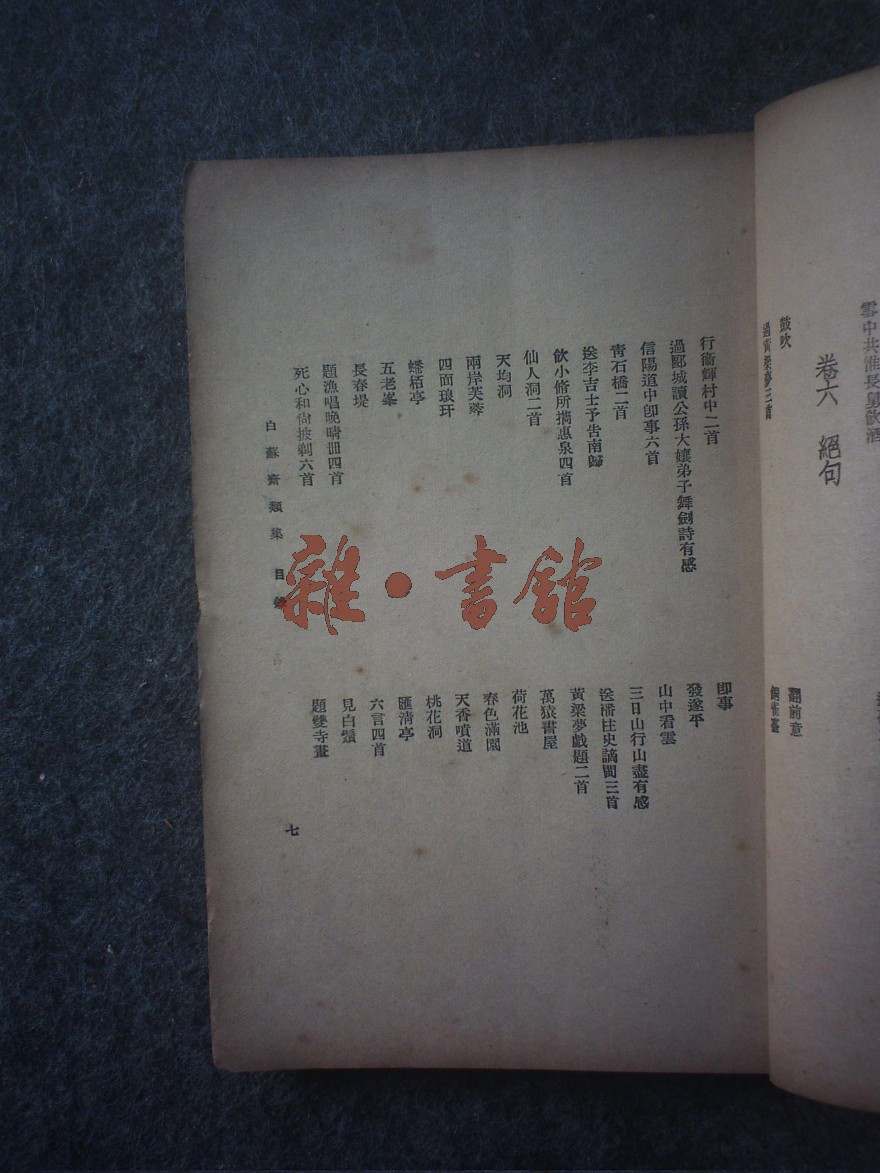 雪中共惟長
卷六 絕句
鼓吹
翻前意
過黃粱夢三首
銅雀臺
行衞輝村中二首
過郾城讀公孫大孃弟子舞劍詩有感
信陽道中卽事六首
靑石橋二首
送李吉士予吿南歸
飮小脩所携惠泉四首
仙人洞二首
天均洞
兩岸芙蓉
四面琅玕
蟠栢亭
五老峯
長春堤
題漁唱晚晴冊四首
死心和尙披剃六首
卽事
發遂平
山中看雲
三日山行山盡有感
送潘柱史謫閩三首
黃粱夢戲題二首
萬猿書屋
荷花池
春色滿園
天香噴道
桃花洞
匯淸亭
六言四首
見白鬚
題雙寺畫
白蘇齋類集 目錄
七
雜·書館